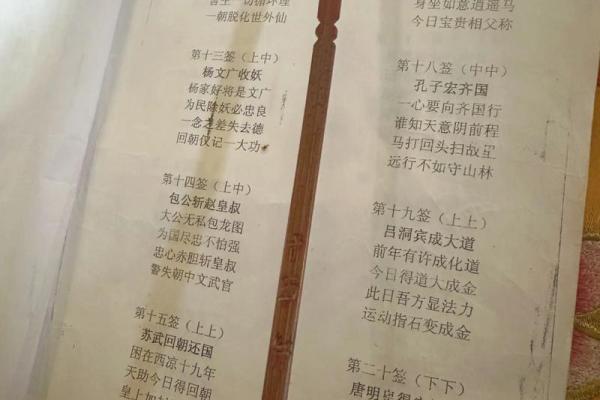 一朝脱化世外仙
第十三签（上中）
杨文广收妖
杨家好将是文广
为民除妖必忠良
一念之差失去德
回朝仅记一大功
第十四签（上中）
包公斩赵皇叔
大公无私包龙图
为国尽忠不怕强
忠心赤胆斩皇叔
警失朝中文武官
第十五签（上上）
苏武回朝还国
困在西凉十九年
天助今日得回朝
皇上加
身坐如意逍遥马
今日宝贵相父称
第十八签（中中）
孔子宏齐国
一心要向齐国行
谁知天意阴前程
马打回头扫故里
远行不如守山林
第十九签（上上）
吕洞宾成大道
前年有许成化道
今日得道大成金
此日吾方显法力
运动指石变成金
第二十签（下下）
唐明皇